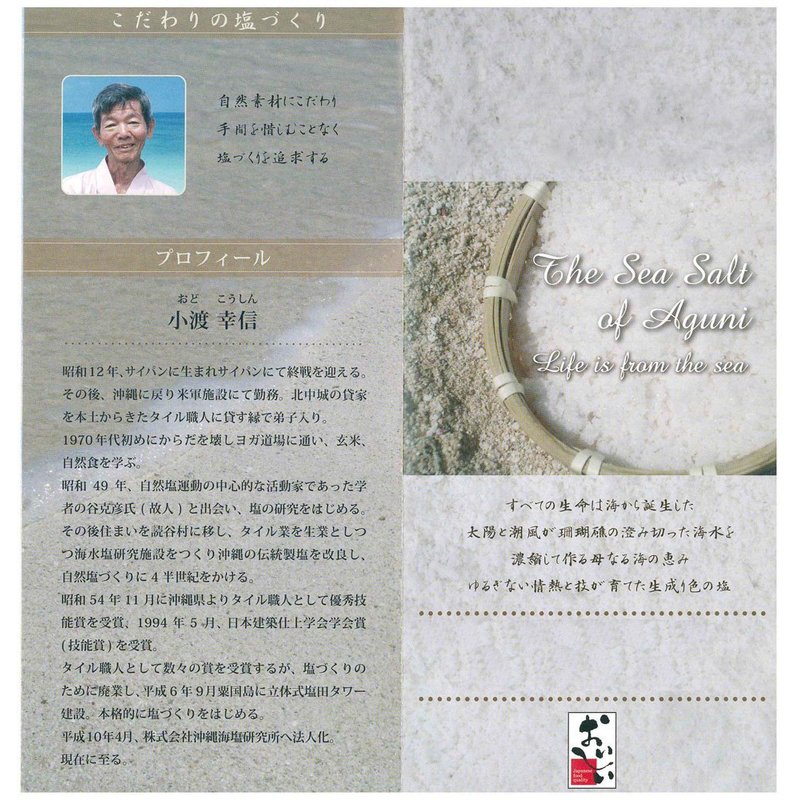 こだわりの塩づくり
自然素材にこだわり
手間を惜しむことなく
塩づくりを追求する
プロフィール
おど こうしん
小渡 幸信
昭和12年、サイパンに生まれサイパンにて終戦を迎える。
その後、沖縄に戻り米軍施設にて勤務。北中城の貸家
を本土からきたタイル職人に貸す縁で弟子入り。
1970年代初めにからだを壊しヨガ道場に通い、玄米、
自然食を学ぶ。
昭和 49 年、自然塩運動の中心的な活動家であった学
者の谷克彦氏(故人)と出会い、塩の研究をはじめる。
その後住まいを読谷村に移し、タイル業を生業としつ
つ海水塩研究施設をつくり沖縄の伝統製塩を改良し、
自然塩づくりに4半世紀をかける。
昭和54年11月に沖縄県よりタイル職人として優秀技
能賞を受賞、1994 年 5 月、日本建築仕上学会学会賞
(技能賞)を受賞。
タイル職人として数々の賞を受賞するが、塩づくりの
ために廃業し、平成6年9月粟国島に立体式塩田タワー
建設。本格的に塩づくりをはじめる。
平成10年4月、株式会社沖縄海塩研究所へ法人化。
現在に至る。
The Sea Salt
of Aguni
Life is from the sea
すべての生命は海から誕生した
太陽と潮風が珊瑚礁の澄み切った海水を
濃縮して作る母なる海の恵み
ゆるぎない情熱と技が育てた生成り色の塩
おいしい
Japanese
food
quality